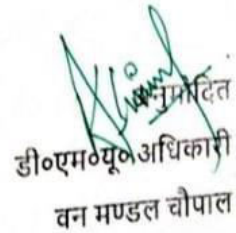 अनुमोदित
डी०एम०यू०अधिकारी
वन मण्डल चौपाल